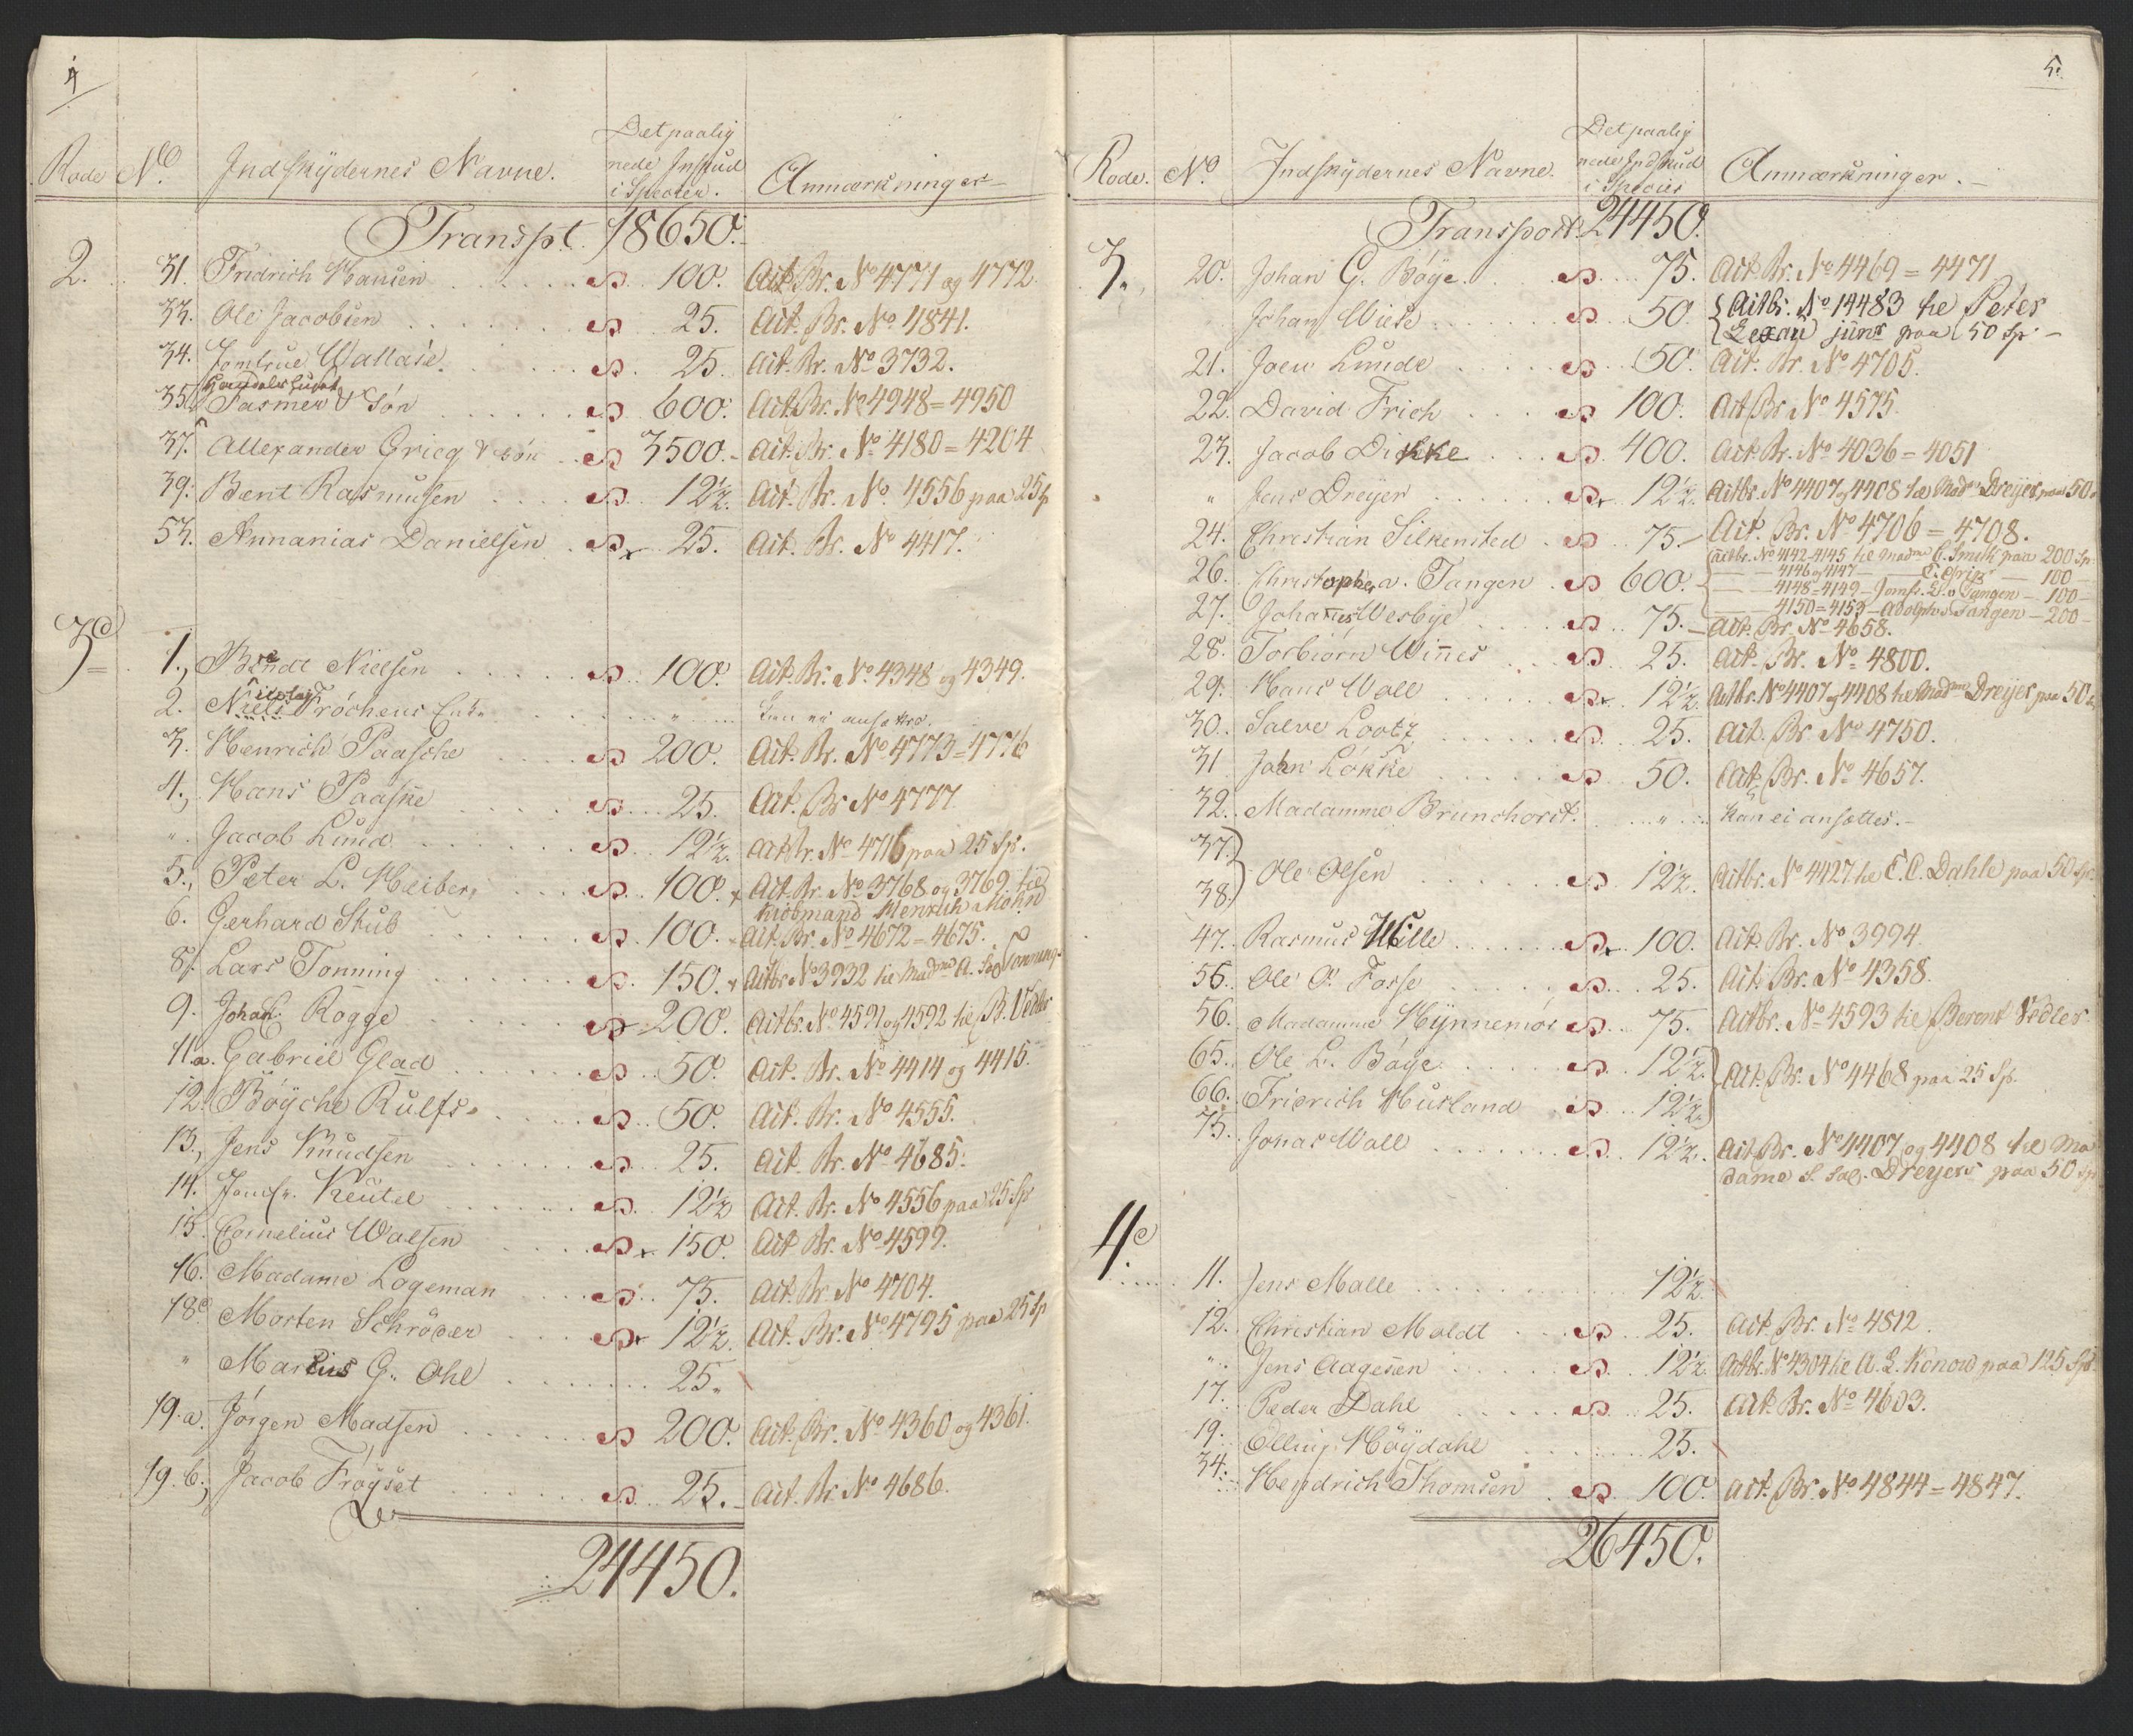 4
Rode No. Indskydernes Navne. Det paalig
nede Inskud
i Specier. Anmærkninger
Transpt. 18650.
2. 31. Fridrich Hansen 100. Act. Br. No 4771 og 4772.
33. Ole Jacobsen 25. Act. Br. No. 4841.
34. Jomfrue Wallase 25. Act. Br. No 3732.
Handelshuset
35. Fasmer & Søn 600. Act. Br. No 4948 = 4950
37. Allexander Grieg & Søn 3500. Act. Br. No 4180 = 4204
39. Bent Rasmusen 12½. Act. Br. No. 4556 paa 25 sp
53. Annanias Danielsen 25. Act. Br. No 4417.
3d 1. Bende Nielsen 100. Act. Br. No. 4348 og 4349.
2. Niels Frøchens Enke " kan ei ansættes.
3. Henrich Paasche 200. Act. Br. No 4773 = 4776
4. Hans Paaske 25. Act. Br No 4777
" Jacob Lund 12½. Act Br. No 4716 paa 25 Sp.
5. Peter L. Heiberg 100. Act. Br. No 3768 og 3769 til
Kiøbmand Henrich Mohn
6. Gerhard Stub 100. Act. Br. No 4672 = 4675.
8. Lars Tonning 150. Actbr. No 3932 til Madme A. Sal. Tonning
9. Johan Rogge 200. Actbr. No 4591 og 4592 til B. Vedler
11a. Gabriel Glad 50. Act. Br. No 4414 og 4415.
12. Bøyche Rulfs 50. Act. Br. No 4555.
13. Jens Knudsen 25. Act. Br. No 4685.
14. Jomfr. Keutel 12½ Act. Br. No 4556 paa 25 Sp
15. Cornelius Walsen 150. Act. Br. No 4599.
16. Madame Logeman 75. Act. Br. No 4704.
18d Morten Schrøder 12½. Act. Br. No 4795 paa 25 Sp
" Martius G. Ohl 25.
19.a. Jørgen Madsen 200. Act. Br. No 4360 og 4361.
19.b. Jacob Frøyset 25. Act. Br. No 4686.
24450.
5.
Rode. No. Indskydernes Navne. Det paalig
nede Indskud
i Specier Anmærkninger.
Transport. 24450.
3. 20. Johan G. Bøye. 75. Act. Br. No 4469 = 4471
Johan Wiese 50 Actbr. No 14483 til Peter
Lexau junr paa 50 Sp.
21. Joen Lunde 50. Act. Br. No 4705.
22. David Frich 100. Act Br No 4575.
23. Jacob Dikke 400. Act. Br. No 4036 = 4051
" Jens Dreyer 12½. Actbr. No 4407 og 4408 til Madme Dreyer paa 50
24. Christian Silkensted 75. Act. Br. No 4706 = 4708.
26. Christopher v. Tangen 600. Actbr. No 4142-4145 til Madme C. Smith paa 200 Sp
4146 og 4147 100
4148-4149 - Jomfr. E. v. Tangen - 100
4150 = 4153 - Adolph v. Tangen - 200
27. Johannes Wesbye 75. Act. Br. No 4658.
28. Torbiørn Winnes 25. Act. Br. No 4800.
29. Hans Wall 12½ Actbr. No 4407 og 4408 til Madme Dreyer paa 50
30. Salve Lootz 25. Act. Br No 4750.
31 John Løkke 50. Act. Br. No 4657.
32. Madamme Brunchorst " Kan ei ansættes.
37.
38. Ole Olsen 12½. Actbr. No 4427 til C. C. Dahle paa 50 Sp.
47. Rasmus Wille 100. Act. Br. No 3994
56. Ole O. Fosse 25. Act. Br. No 4358.
56. Madamme Hynnemør 75. Actbr. No 4593 til Berent Vedler
65. Ole L. Bøye 12½. Act. Br. No 4468 paa 25 Sp.
66. Friderich Husland 12½.
75. Jonas Wall 12½. Act. Br. No 4407 og 4408 til Ma
dame S. Sal. Dreyers paa 50 Sp
4d 11. Jens Malle 12½
12. Christian Moldt 25. Act. Br. No 4812
" Jens Aagesen 12½. Actbr. No 4304 til A. L. Konow paa 125 Sp
17. Peder Dahl 25. Act. Br. No 4603.
19. Elling Høydahl 25.
34. Hendrich Thomsen 100. Act. Br. No 4844 = 4847.
26450.